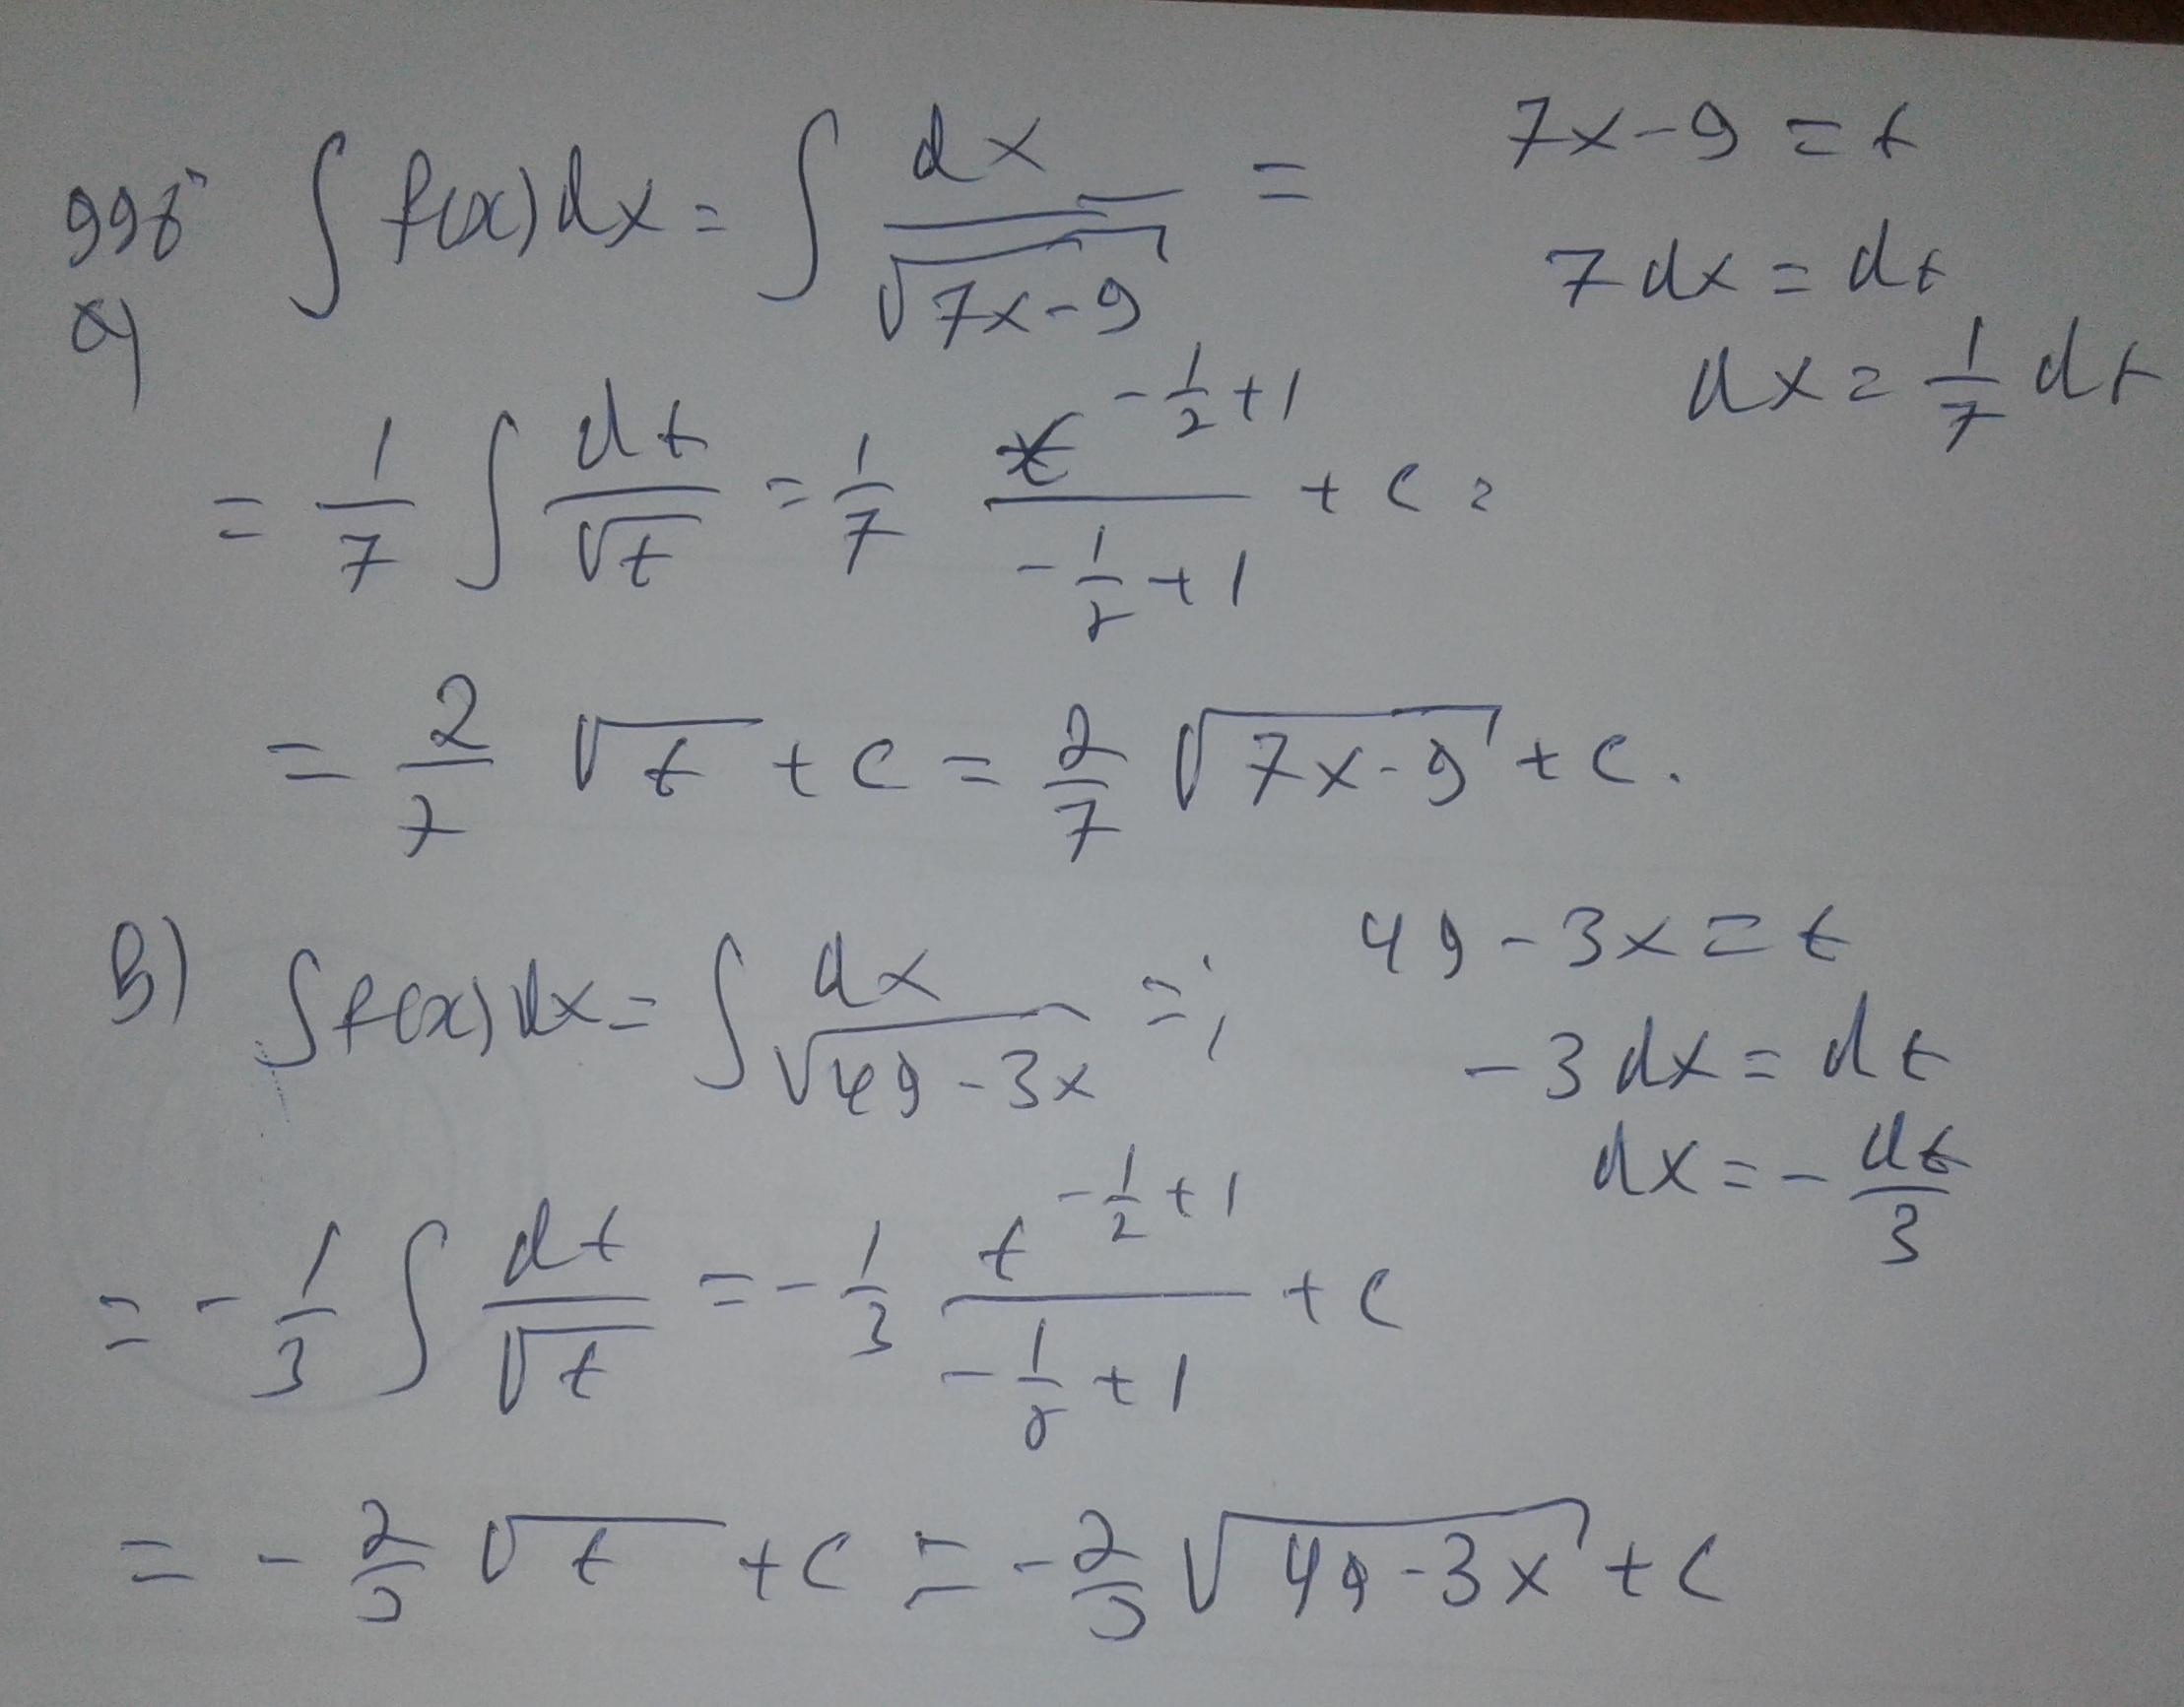 998 ∫ f(x) dx = ∫ dx/√(7x-9) = 7x-9 = t
а) 7dx = dt
dx = 1/7 dt
= 1/7 ∫ dt/√t = 1/7 t^(-1/2+1)/(-1/2+1) + c =
= 2/7 √t + c = 2/7 √(7x-9) + c.
в) ∫ f(x) dx = ∫ dx/√(49-3x) = ; 49-3x = t
-3dx = dt
dx = - dt/3
= - 1/3 ∫ dt/√t = - 1/3 t^(-1/2+1)/(-1/2+1) + c
= - 2/3 √t + c = - 2/3 √(49-3x) + c